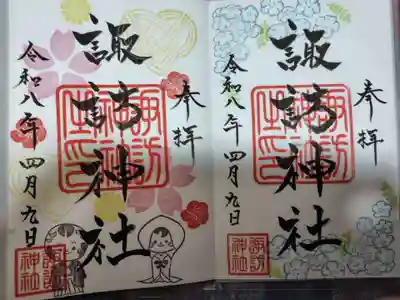 奉拝
諏訪神社
諏訪
神社
之印
令和八年 四月九日
諏訪
神社
奉拝
諏訪神社
諏訪
神社
之印
令和八年 四月九日
諏訪
神社